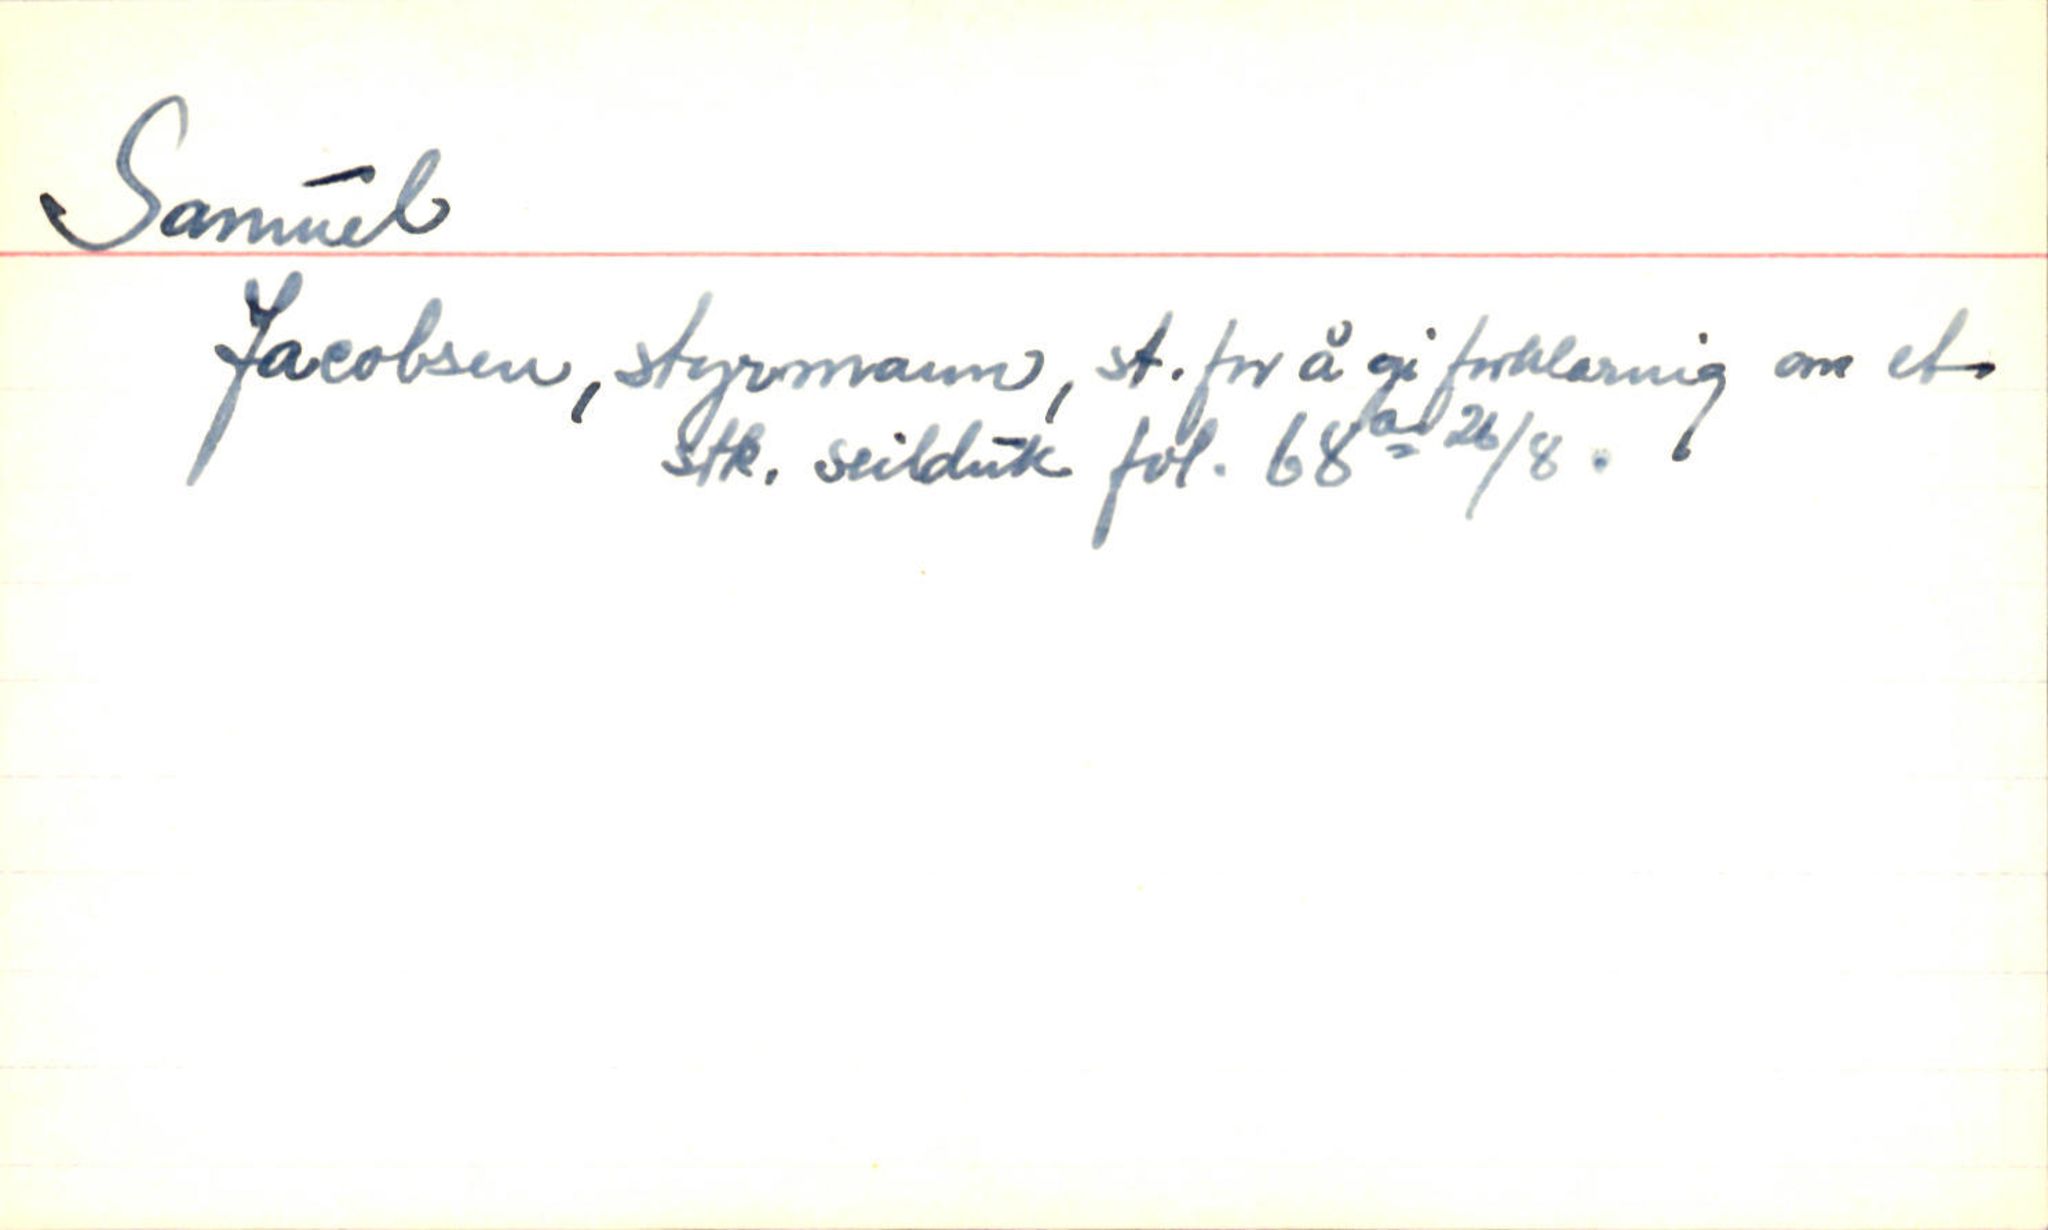 Samuel
Jacobsen, styrmann, st. for å gi forklaring om et
stk. seilduk fol. 68a 26/8.